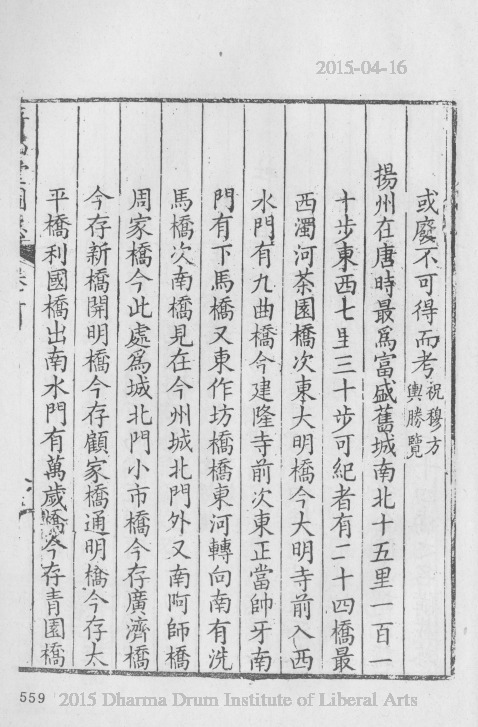 2015-04-16
或廢不可得而考祝穆方輿勝覽
揚州在唐時最爲富盛舊城南北十五里一百一
十步東西七里三十步可紀者有二十四橋最
西濁河茶園橋次東大明橋今大明寺前入西
水門有九曲橋今建隆寺前次東正當帥牙南
門有下馬橋又東作坊橋橋東河轉向南有洗
馬橋次南橋見在今州城北門外又南阿師橋
周家橋今此處爲城北門小市橋今存廣濟橋
今存新橋開明橋今存顧家橋通明橋今存太
平橋利國橋出南水門有萬歲橋今存青園橋
559 2015 Dharma Drum Institute of Liberal Arts